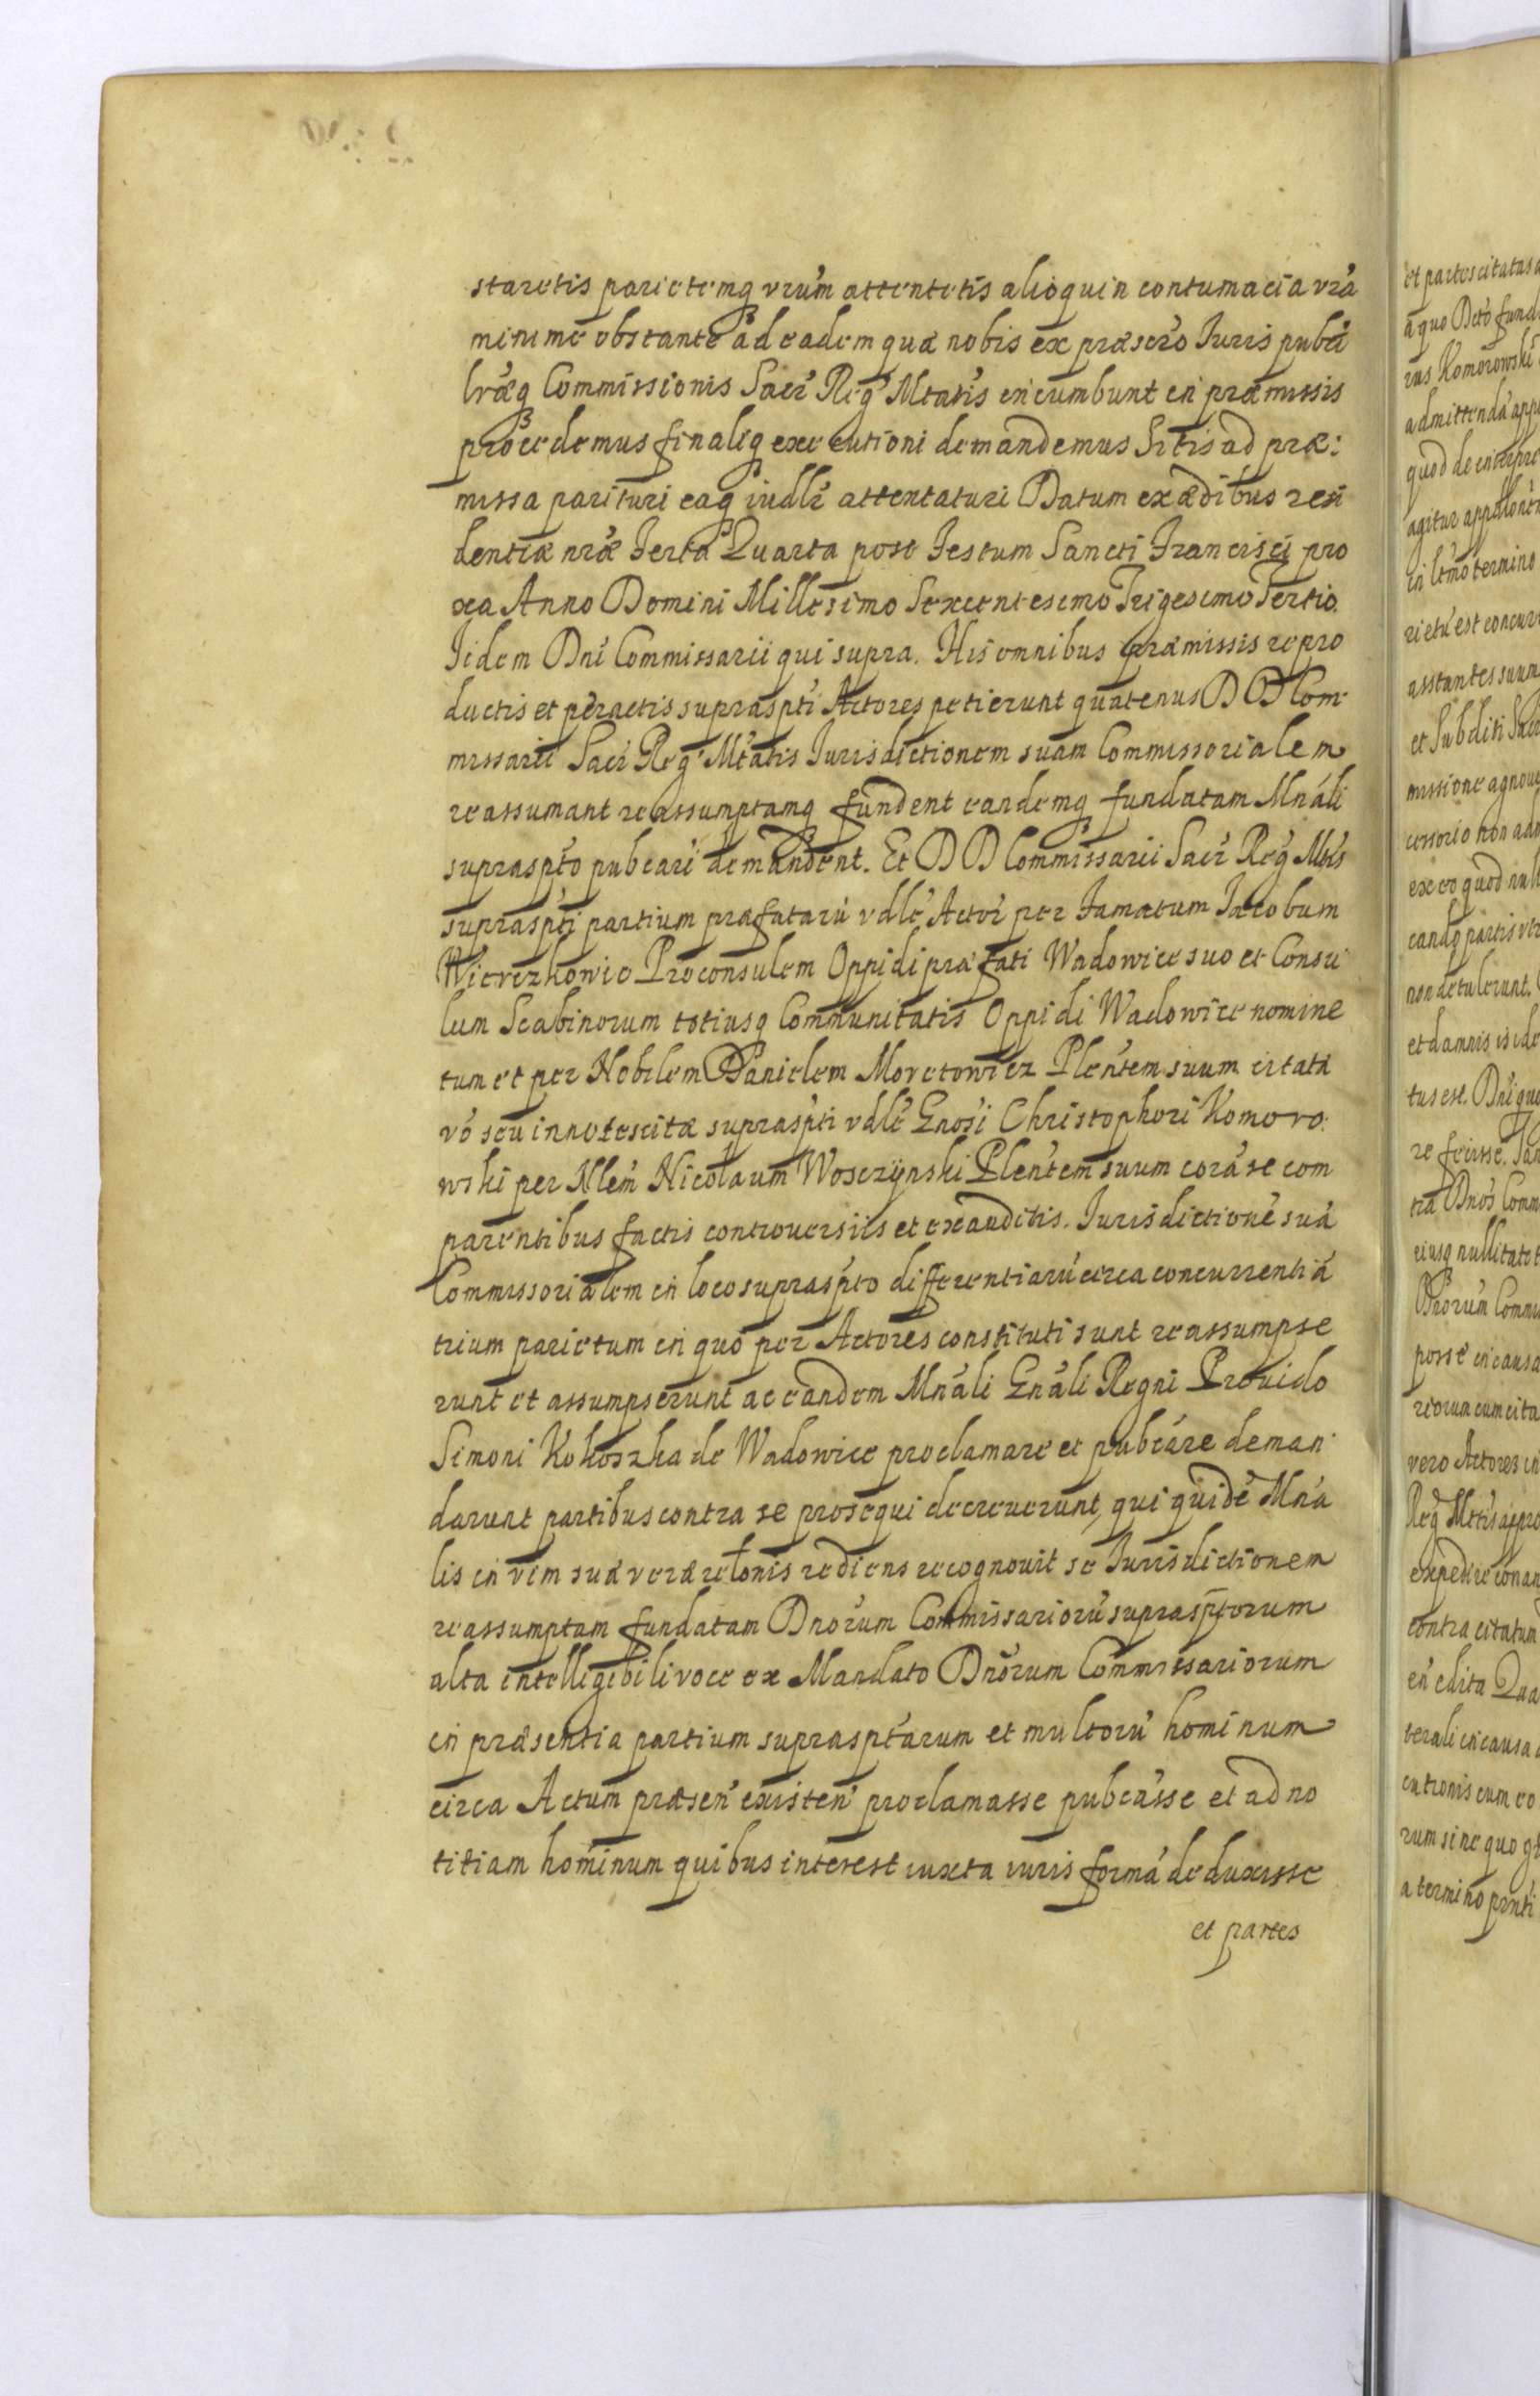 staretis parietemq vrum attentetis alioquin contumacia vrá
minime obstante ad eadem quæ nobis ex præscró Iuris pubci
lrǽq Commissionis Sacr Reg Mtatis incumbunt in præmissis
procedemus finaliq executioni demandemus Sitis ad præ:
missa parituri eaq iudlr attentaturi Datum ex ædibus resi
dentiæ nræ Feria Quarta post Festum Sancti Francisci pro
xa Anno Domini Millesimo Sexcentesimo Trigesimo Tertio.
Iidem Dni Commissarii qui supra. His omnibus præmissis repro
ductis et peractis supraspti Actores petierunt quatenus D D Com
missarii Sacr Reg Mtatis Iurisdictionem suam Commissorialem
reassumant reassumptamq fundent eandemq fundatam Mnáli
suprasptó pubcari demandent. Et D D Commissarii Sacr Reg Mtis
supraspti partium præfatarú vdlt Actor per Famatum Iacobum
Wierzhowic Proconsulem Oppidi præfati Wadowice suo et Consu
lum Scabinorum totiusq Communitatis Oppidi Wadowice nomine
tum et per Nobilem Danielem Moretowicz Plentem suum citati
vó seu innotescitæ supraspti vdlt Gnosi Christophori Komoro
wski per Nlem Nicolaum Wosczÿnski Plentem suum corá se com
parentibus factis controuersiis et exauditis. Iurisdictioné suá
Commissorialem in loco supraspto differentiarú circa concurrentiá
trium parietum in quo per Actores constituti sunt reassumpse
runt et assumpserunt ac eandem Mnáli Gnáli Regni Prouido
Simoni Kokoszka de Wadowice proclamare et pubcáre deman
darunt partibus contra se prosequi decreuerunt, qui quidé Mná
lis in vim suæ veræ reltonis rediens recognouit se Iurisdictionem
reassumptam fundatam Dnorum Commissariorú suprasptorum
alta intelligibili voce ex Mandato Dnorum Commissariorum
in præsentia partium supraspta­rum et multorú hominum
circa Actum præsen existen proclamasse pubcásse et ad no
titiam hominum quibus interest iuxta iuris formá deduxisse
et partes
et partes citatas
a quo Dctó fund
rus Komorowski
admittenda app
quod de interpre
in ltmo termino
rietú est concur
asstantes suum
et Subditi Sacr
missione agnoue
cessorio non adm
ex eo quod null
cando partis
non detulerunt.
et damnis
tus est. Dni quo
re fecisse.
tia Dnos Comm
eiusq nullitate
Dnorum Commi
posse in causa
reorum cum cita
vero Actores in
Reg Mttis appro
expedire conan
contra citatum
terali in causa
cutionis cum eo
rum sine quo
a termino prnti